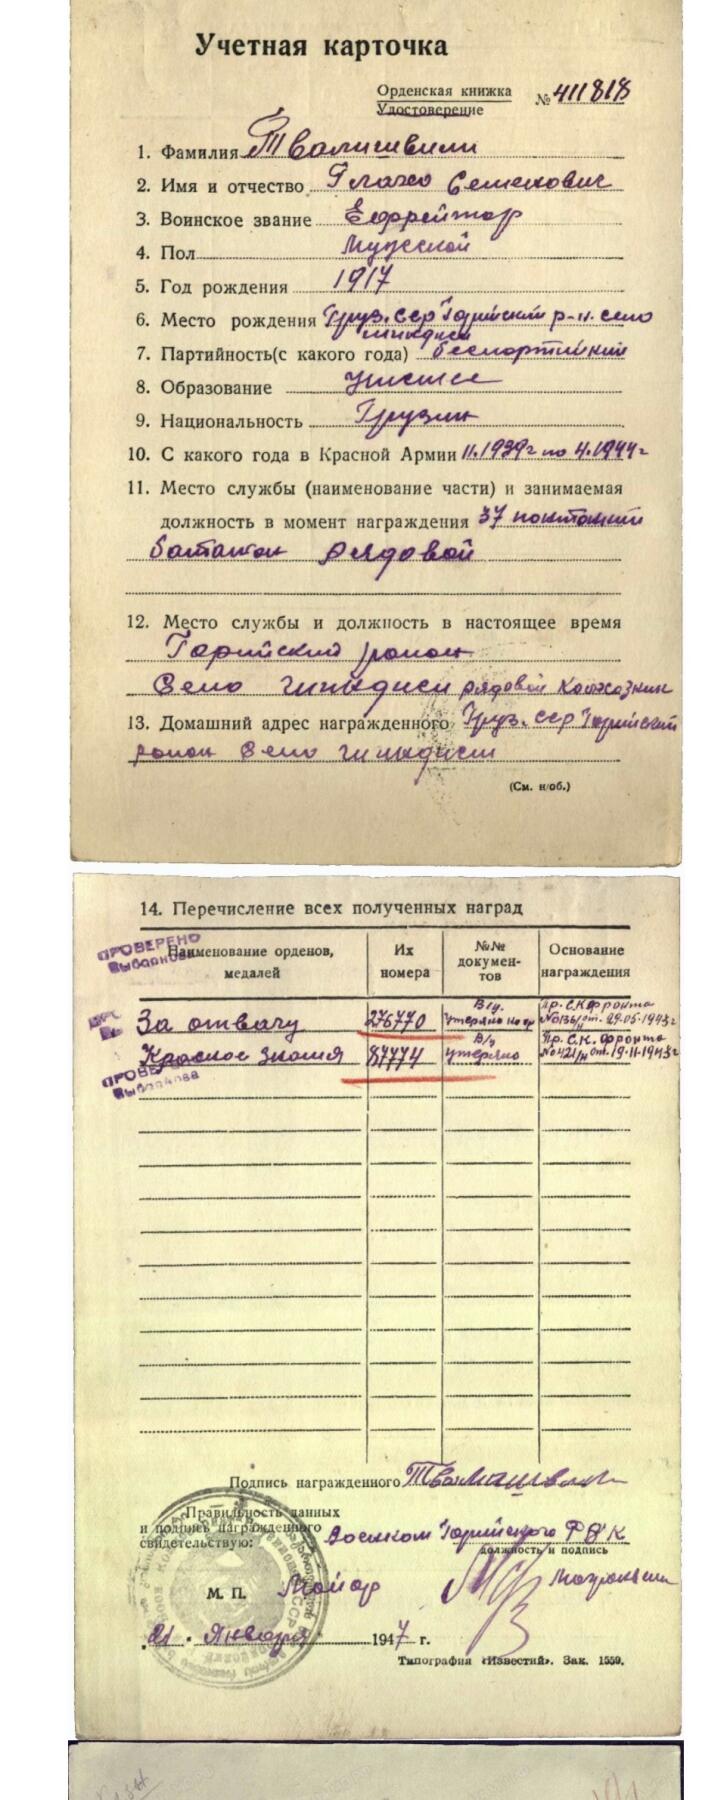 Учетная карточка
Орденская книжка № 411818
Удостоверение
1. Фамилия Твалишвили
2. Имя и отчество Глахо Семенович
3. Воинское звание Ефрейтор
4. Пол Мужской
5. Год рождения 1917
6. Место рождения Груз. сср Горийский р-н. село
7. Партийность(с какого года) беспартийний
8. Образование
9. Национальность Грузин
10. С какого года в Красной Армии 11.1939г по 4.1944г
11. Место службы (наименование части) и занимаемая
должность в момент награждения 37
баталион рядовой
12. Место службы и должность в настоящее время
Горийский район
Село рядовой Колхозник
13. Домашний адрес награжденного Груз. сср Горийский
район Село
(См. н/об.)
14. Перечисление всех полученных наград
ПРОВЕРЕНО
Наименование орденов, медалей
Их номера
№№ документов
Основание награждения
За отвагу 276770 В/уд. утеряно Пр. С.К. Фронта №0136/н от. 29.05-1943г
Красное Знамя 87774 В/у утеряно Пр. С.К. Фронта №0421/н от. 19-11-1943г
ПРОВЕРЕНО
Подпись награжденного Твалишвили
Правильность данных
и подпись награжденного
свидетельствую: Военком Горийского РВК
должность и подпись
М. П. Майор
21. Января 1947 г.
Типография «Известий». Зак. 1559.